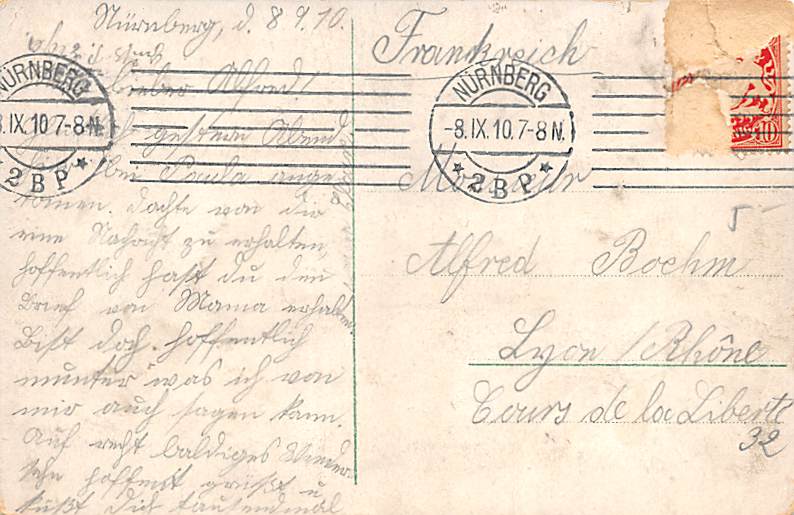 Nürnberg, d. 8 9. 10.
Lieber Alfred!
gestern Abend
bei Paula ange
komen. Dachte von dir
eine Nachricht zu erhalten,
hoffentlich hast du den
Brief von Mama erhalten.
Bist doch hoffentlich
munter was ich von
mir auch sagen kann.
Auf recht baldiges Wieder-
sehn hoffend grüßt u
küßt Dich tausendmal
NÜRNBERG
8.IX.10.7-8N.
2 B P
NÜRNBERG
-8.IX.10.7-8N.
2 B P
10
Frankreich
Monsieur
Alfred Boehm
Lyon / Rhône
Cours de la Liberté
32
5